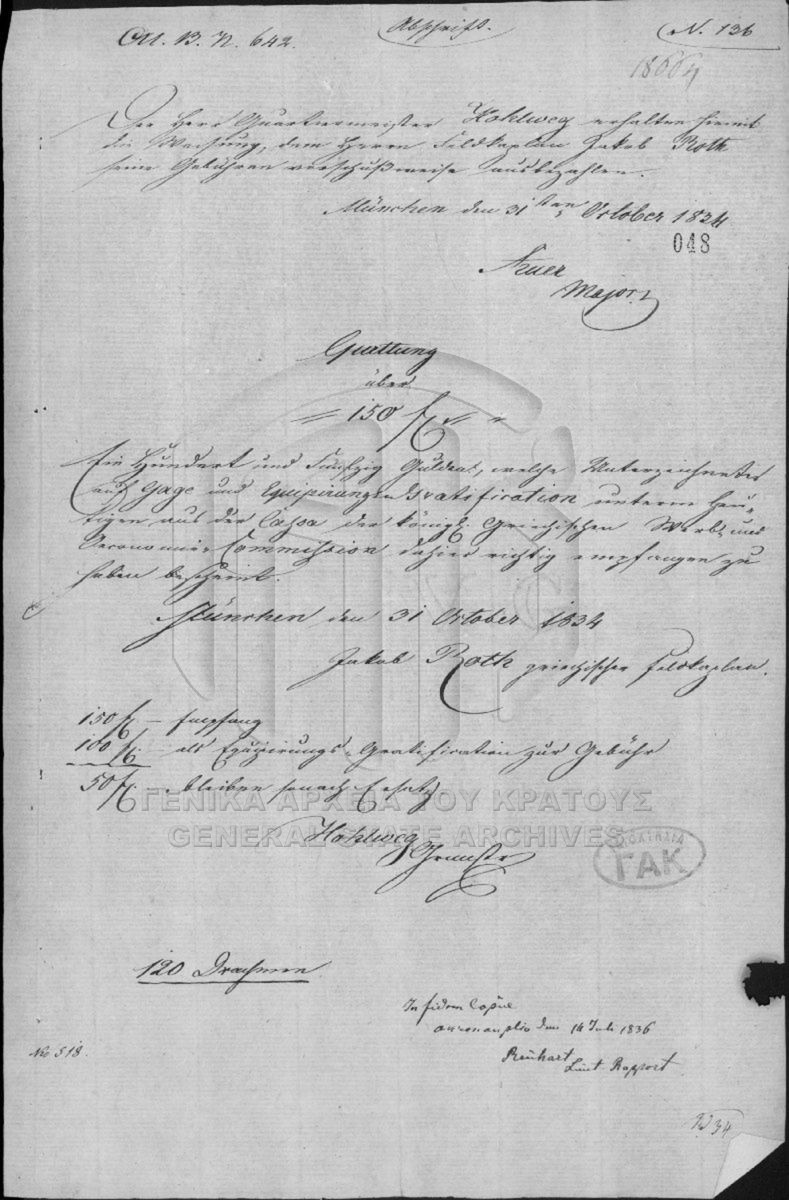 M. B. N. 642.
Abschrift.
N. 136
Der Herr Quartiermeister Hohlweg erhalten hiemit
die Weisung, dem Herrn Feldkaplan Jakob Roth
seine Gebühren vorschußweise auszubezahlen.
München den 31ten October 1834
048
Major
Quittung
über
= 150 f = "
Ein Hundert und Fünfzig Gulden, welche Unterzeichneter
auf Gage und Equipirungs Gratification unterm Heu-
tigen aus der Cassa der königl. Griechischen Werb- und
Oeconomie-Commission dahier richtig empfangen zu
haben bescheint.
München, den 31 October 1834
Jakob Roth griechischer Feldkaplan.
150 f. – Empfang
100 f. – als Equipirungs-Gratification zur Gebühr
50 f. bleiben sonach Ersatz
ΓΕΝΙΚΑ ΑΡΧΕΙΑ ΤΟΥ ΚΡΑΤΟΥΣ
GENERAL STATE ARCHIVES
Hohlweg
ΓΑΚ
120 Drachmen
In fidem Copiae
den 14 Juli 1836
Reinhart
Lieut. Rapport
No 518.